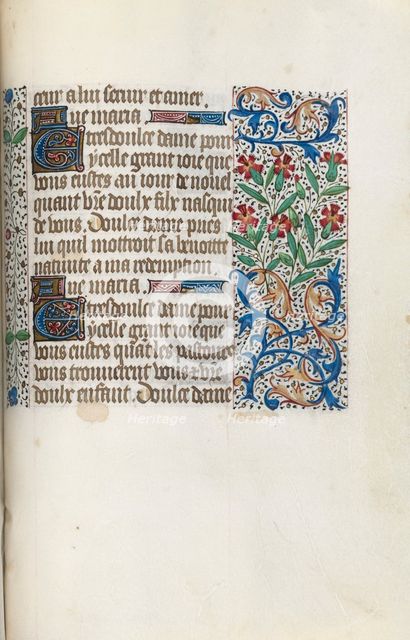 cueur a lui servir et amer.
Ave maria.
Tresdoulce dame pour
ycelle grant ioie que
vous eustes au iour de noue
quant vre doulx filx nasqui
de vous. Doulce dame pues
lui quil mottroit sa benoitte
nativite a ma redemption
Ave maria.
Tresdoulce dame pour
ycelle grant ioie que
vous eustes quant les pastours
vous trouverent vous et vre
doulx enfant. Doulce dame
Heritage
Heritage